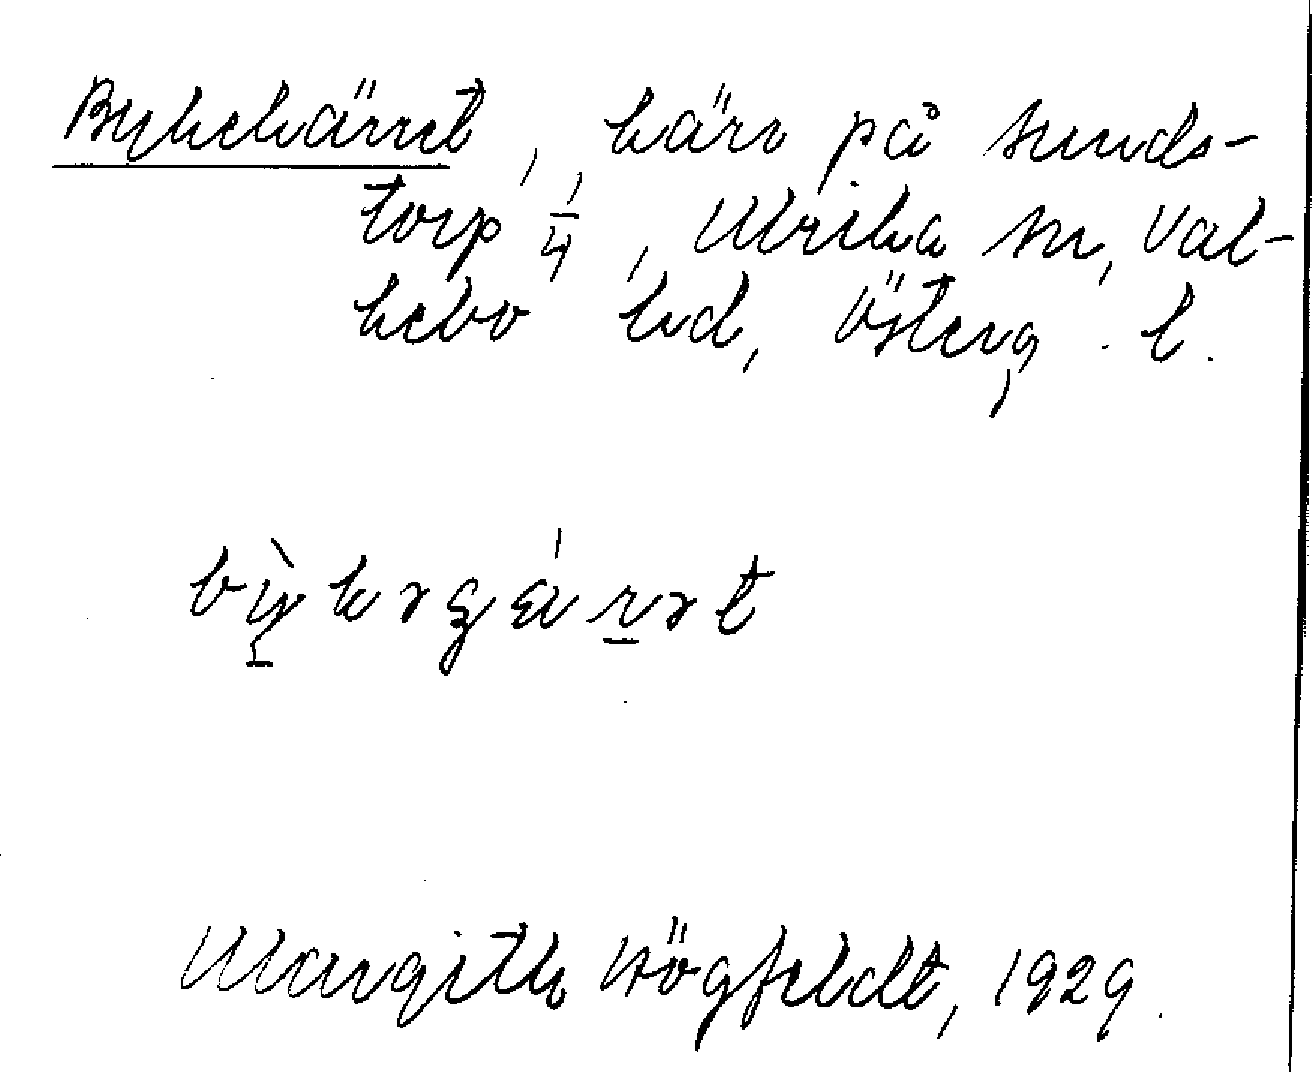 Bykekärret, kärr på Sunds-
torp 1/4, Ulrika sn, Val-
kebo hd, Österg. l.
Margith Högfeldt, 1929.